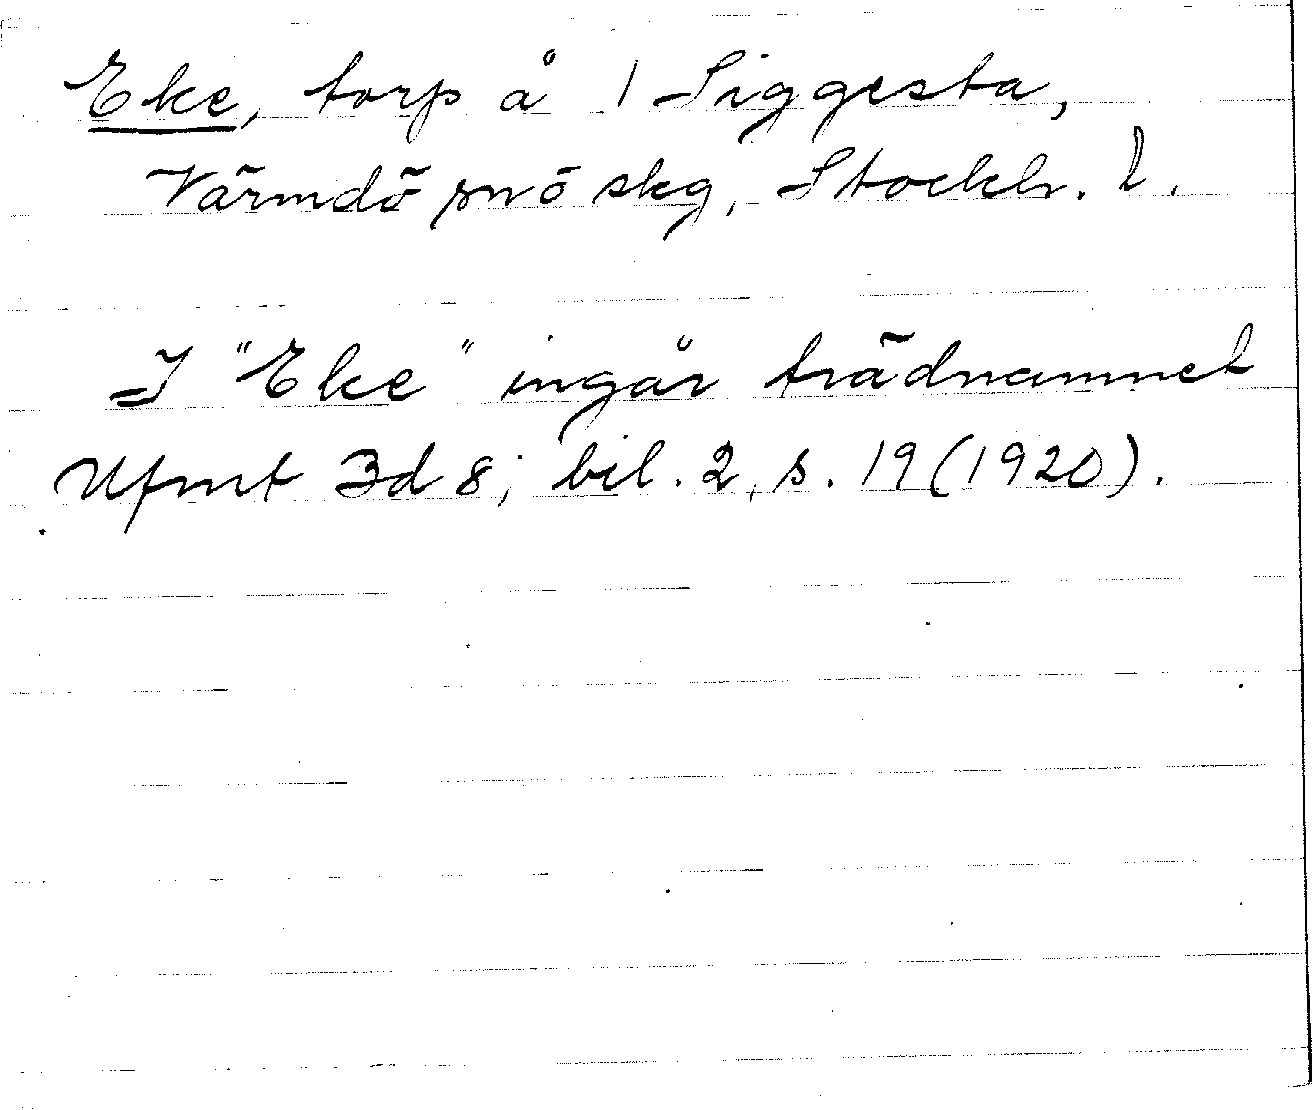 Eke, torp å 1 Siggesta,
Värmdö snö skg, Stockh. l.
I "Eke" ingår trädnamnet
Ufmt 3d 8; bil. 2, s. 19 (1920).